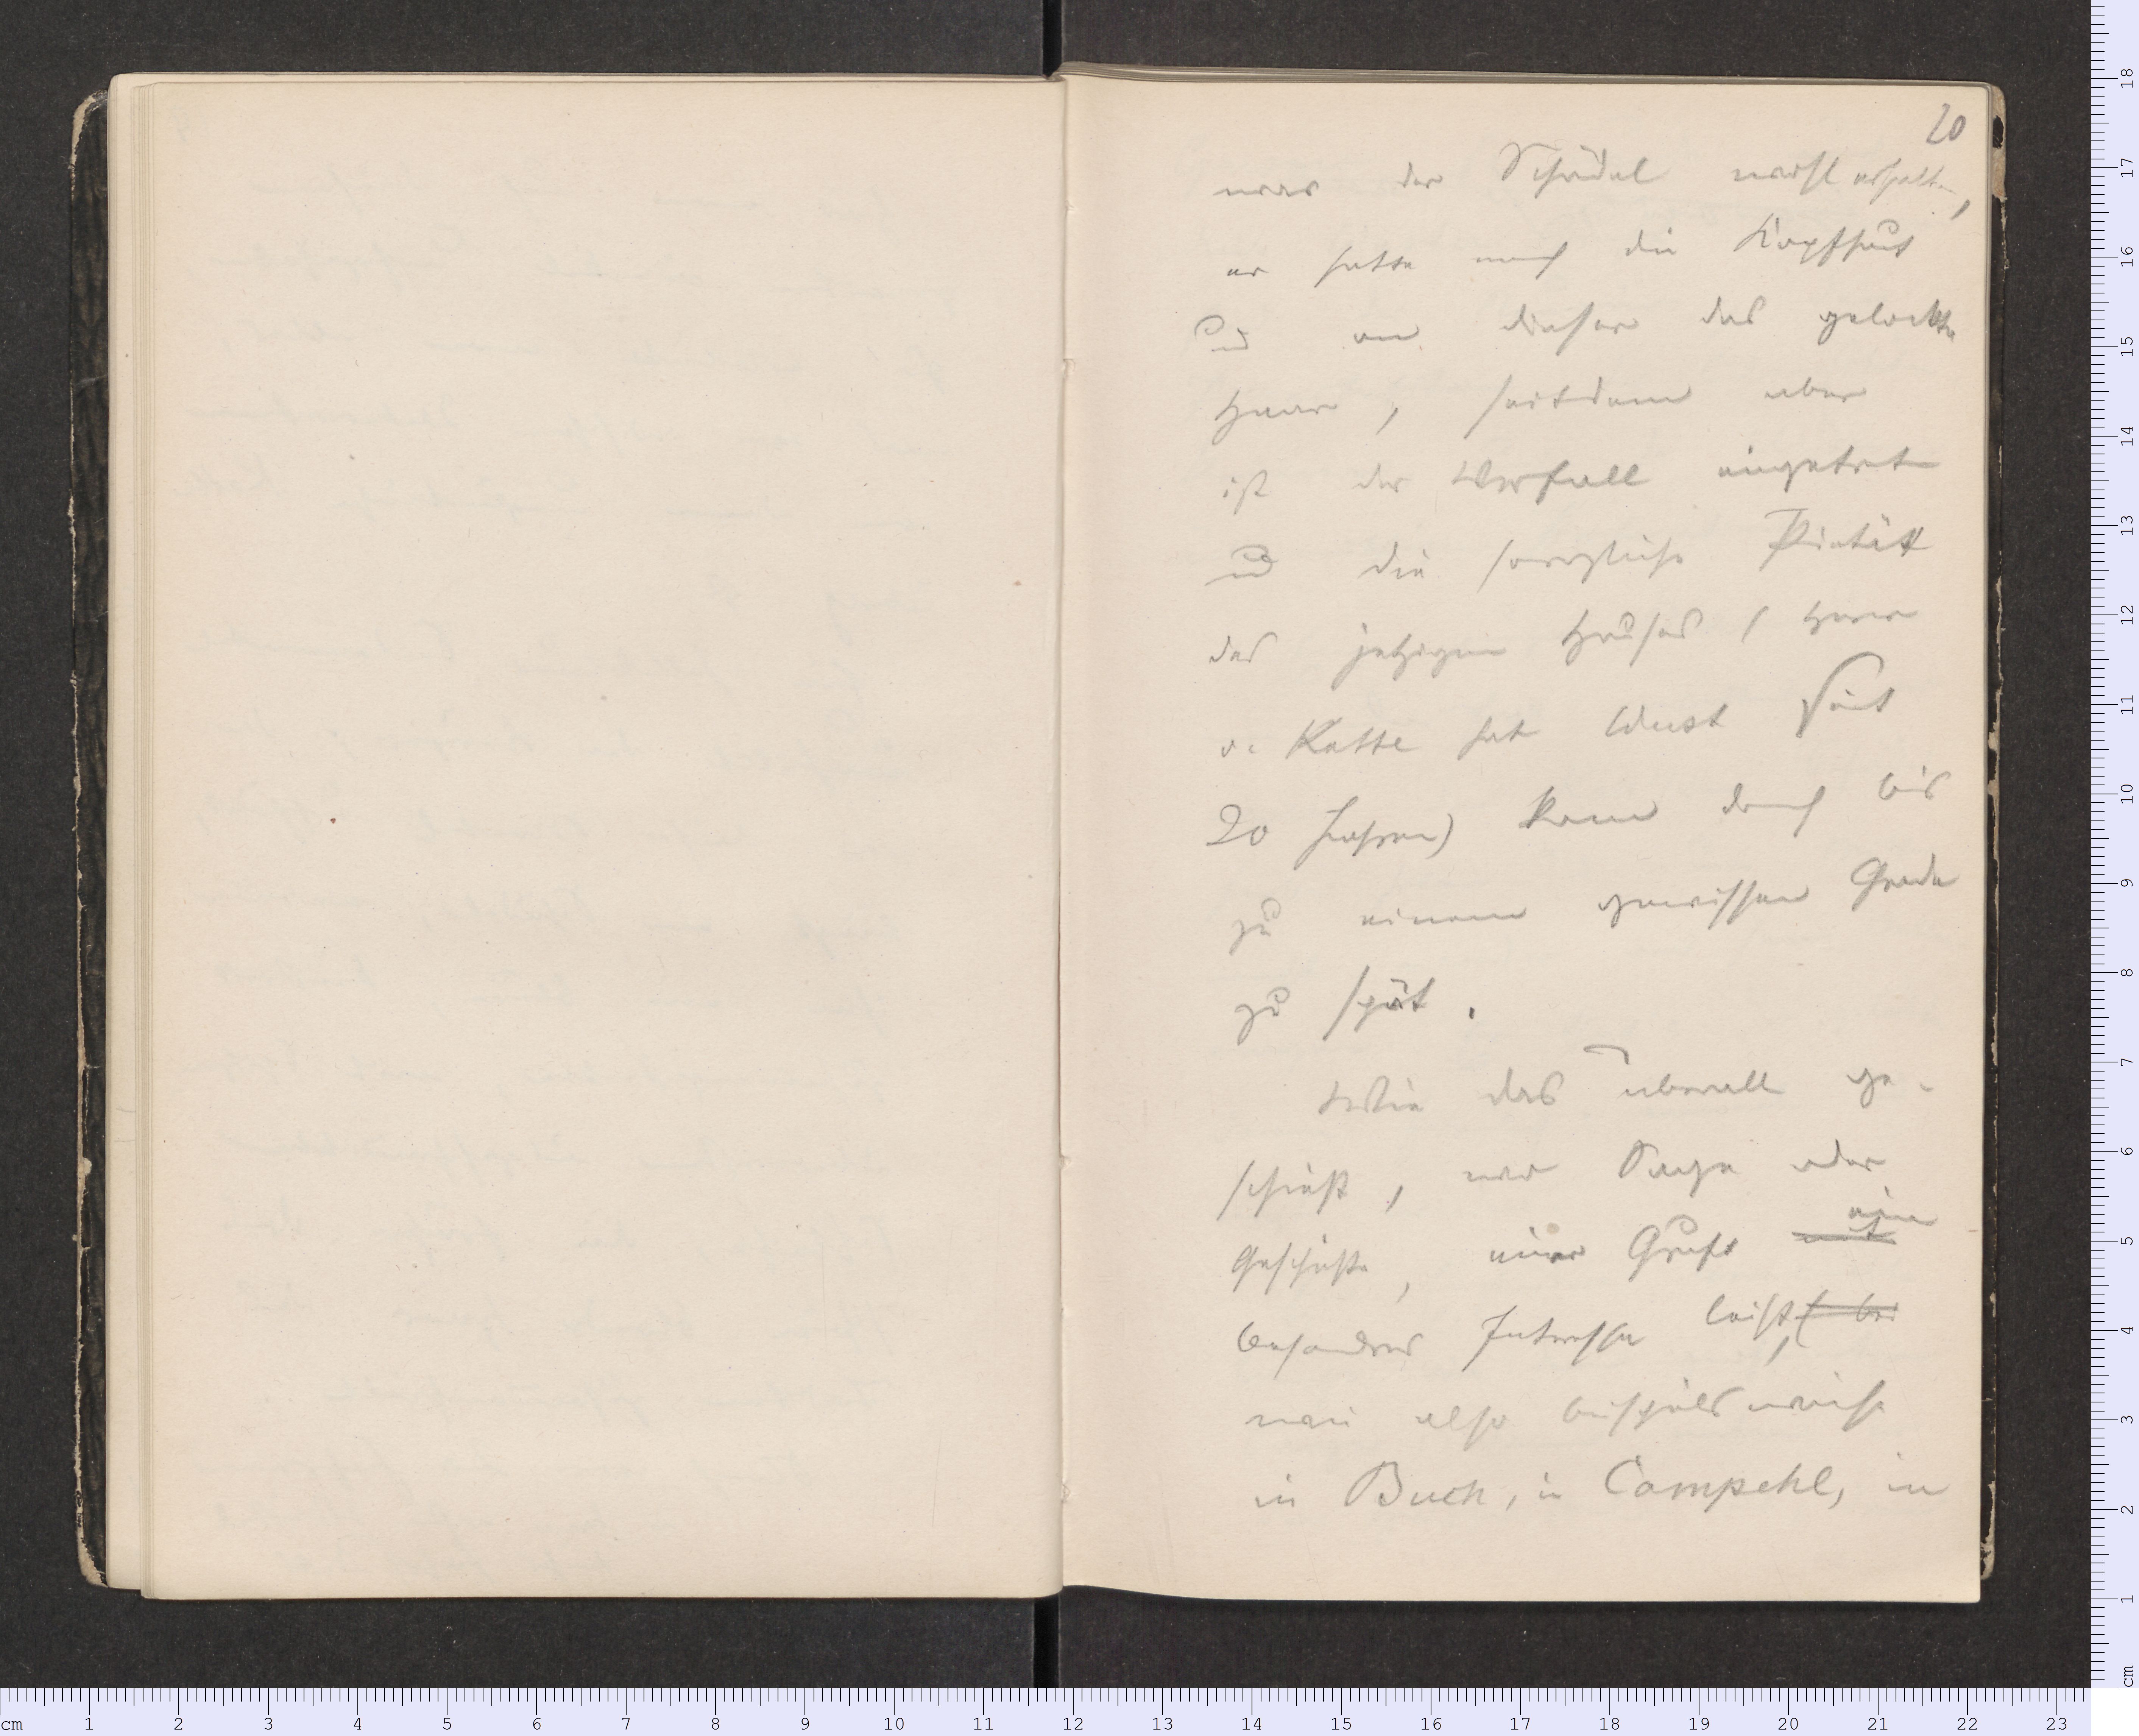 20
war der Schädel wohl erhalten,
er hatte noch die Kopfhaut
und an dieser das gelockte
Haar, seitdem aber
ist der Verfall eingetreten
und die sorgliche Pietät
des jetzigen Hauses (Herr
v. Katte hat Wust seit
20 Jahren) kam doch bis
zu einem gewissen Grade
zu spät.
Wie das überall ge-
schieht, wo Sage oder
Geschichte, einer Gruft ein
besondres Interesse leiht, (bei
wie also beispielsweise
in Buch, in Campehl, in